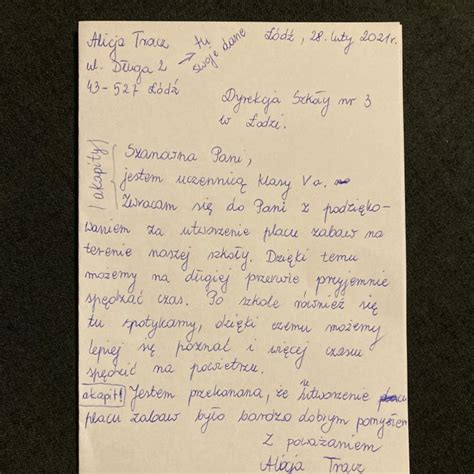 Alicja Tracz
tu swoje dane
Łódź, 28. luty 2021r.
ul. Długa 2
43-527 Łódź
Dyrekcja Szkoły nr 3
w Łodzi.
/akapity/
Szanowna Pani,
jestem uczennicą klasy V a.
Zwracam się do Pani z podzięko-
waniem za utworzenie placu zabaw na
terenie naszej szkoły. Dzięki temu
możemy na długiej przerwie przyjemnie
spędzać czas. Po szkole również się
tu spotykamy, dzięki czemu możemy
lepiej się poznać i więcej czasu
spędzić na powietrzu.
akapit! Jestem przekonana, że utworzenie
placu zabaw było bardzo dobrym pomysłem.
Z poważaniem
Alicja Tracz